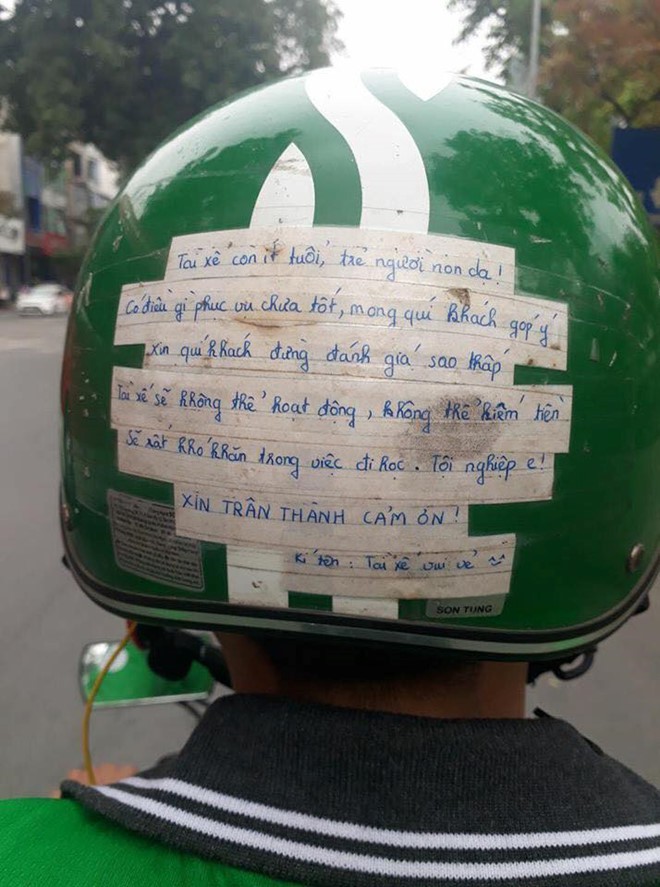 Tài xế còn ít tuổi, trẻ người non dạ!
Có điều gì phục vụ chưa tốt, mong quí khách góp ý
Xin quí khách đừng đánh giá sao thấp
Tài xế sẽ không thể hoạt động, không thể kiếm tiền
Sẽ rất khó khăn trong việc đi học. Tội nghiệp e!
XIN TRÂN THÀNH CẢM ƠN!
Kí tên: Tài xế vui vẻ
SON TUNG